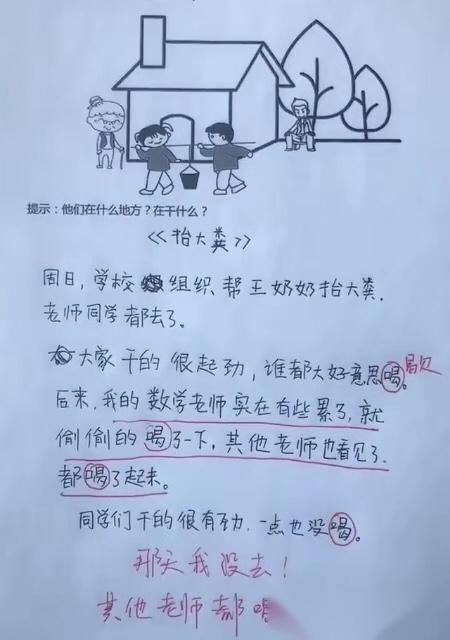 提示：他们在什么地方？在干什么？
《抬大粪》
周日，学校组织帮王奶奶抬大粪.
老师同学都去了。
大家干的很起劲，谁都大好意思喝。歇
后来，我的数学老师实在有些累了，就
偷偷的喝了一下，其他老师也看见了，
都喝了起来。
同学们干的很有劲，一点也没喝。
那天我没去！
其他老师都